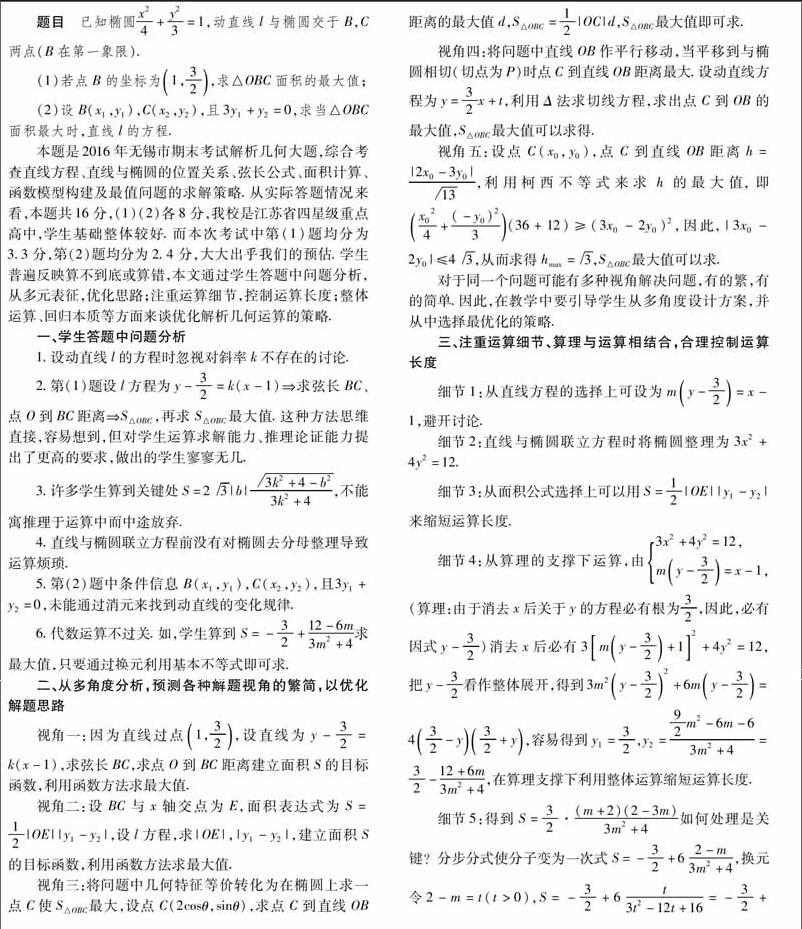 题目 已知椭圆x²/4+y²/3=1,动直线 l 与椭圆交于 B,C
两点(B 在第一象限).
(1)若点 B 的坐标为(1,3/2),求△OBC 面积的最大值;
(2)设 B(x₁,y₁),C(x₂,y₂),且 3y₁+y₂=0,求当△OBC
面积最大时,直线 l 的方程.
本题是 2016 年无锡市期末考试解析几何大题,综合考
查直线方程、直线与椭圆的位置关系、弦长公式、面积计算、
函数模型构建及最值问题的求解策略. 从实际答题情况来
看,本题共 16 分,(1)(2)各 8 分,我校是江苏省四星级重点
高中,学生基础整体较好. 而本次考试中第(1)题均分为
3. 3 分,第(2)题均分为 2. 4 分,大大出乎我们的预估. 学生
普遍反映算不到底或算错,本文通过学生答题中问题分析,
从多元表征,优化思路;注重运算细节,控制运算长度;整体
运算、回归本质等方面来谈优化解析几何运算的策略.
一、学生答题中问题分析
1. 设动直线 l 的方程时忽视对斜率 k 不存在的讨论.
2. 第(1)题设 l 方程为 y-3/2=k(x-1)⇒求弦长 BC、
点 O 到 BC 距离⇒S△OBC,再求 S△OBC最大值. 这种方法思维
直接,容易想到,但对学生运算求解能力、推理论证能力提
出了更高的要求,做出的学生寥寥无几.
3. 许多学生算到关键处 S=2√3|b|√(3k²+4-b²)/(3k²+4),不能
寓推理于运算中而中途放弃.
4. 直线与椭圆联立方程前没有对椭圆去分母整理导致
运算烦琐.
5. 第(2)题中条件信息 B(x₁,y₁),C(x₂,y₂),且3y₁+
y₂=0,未能通过消元来找到动直线的变化规律.
6. 代数运算不过关. 如,学生算到 S=-3/2+(12-6m)/(3m²+4)求
最大值,只要通过换元利用基本不等式即可求.
二、从多角度分析,预测各种解题视角的繁简,以优化
解题思路
视角一:因为直线过点(1,3/2),设直线为 y-3/2=
k(x-1),求弦长 BC,求点 O 到 BC 距离建立面积 S 的目标
函数,利用函数方法求最大值.
视角二:设 BC 与 x 轴交点为 E,面积表达式为 S=
1/2|OE||y₁-y₂|,设 l 方程,求|OE|,|y₁-y₂|,建立面积 S
的目标函数,利用函数方法求最大值.
视角三:将问题中几何特征等价转化为在椭圆上求一
点 C 使 S△OBC最大,设点 C(2cosθ,sinθ),求点 C 到直线 OB
距离的最大值 d,S△OBC=1/2|OC|d,S△OBC最大值即可求.
视角四:将问题中直线 OB 作平行移动,当平移到与椭
圆相切(切点为 P)时点 C 到直线 OB 距离最大. 设动直线方
程为 y=3/2x+t,利用 Δ 法求切线方程,求出点 C 到 OB 的
最大值,S△OBC最大值可以求得.
视角五:设点 C(x₀,y₀),点 C 到直线 OB 距离 h=
|2x₀-3y₀|/√13,利用柯西不等式来求 h 的最大值,即
(x₀²/4+(-y₀)²/3)(36+12)≥(3x₀-2y₀)²,因此,|3x₀-
2y₀|≤4√3,从而求得 hmax=√3,S△OBC最大值可以求.
对于同一个问题可能有多种视角解决问题,有的繁,有
的简单. 因此,在教学中要引导学生从多角度设计方案,并
从中选择最优化的策略.
三、注重运算细节、算理与运算相结合,合理控制运算
长度
细节 1:从直线方程的选择上可设为 m(y-3/2)=x-
1,避开讨论.
细节 2:直线与椭圆联立方程时将椭圆整理为 3x²+
4y²=12.
细节 3:从面积公式选择上可以用 S=1/2|OE||y₁-y₂|
来缩短运算长度.
细节 4:从算理的支撑下运算,由{3x²+4y²=12, m(y-3/2)=x-1,
(算理:由于消去 x 后关于 y 的方程必有根为3/2,因此,必有
因式 y-3/2)消去 x 后必有 3[m(y-3/2)+1]²+4y²=12,
把 y-3/2看作整体展开,得到3m²(y-3/2)²+6m(y-3/2)=
4(3/2-y)(3/2+y),容易得到 y₁=3/2,y₂=(9/2m²-6m-6)/(3m²+4)=
3/2-(12+6m)/(3m²+4),在算理支撑下利用整体运算缩短运算长度.
细节 5:得到 S=3/2·(m+2)(2-3m)/(3m²+4)如何处理是关
键? 分步分式使分子变为一次式 S=-3/2+6(2-m)/(3m²+4),换元
令 2-m=t(t>0),S=-3/2+6t/(3t²-12t+16)=-3/2+